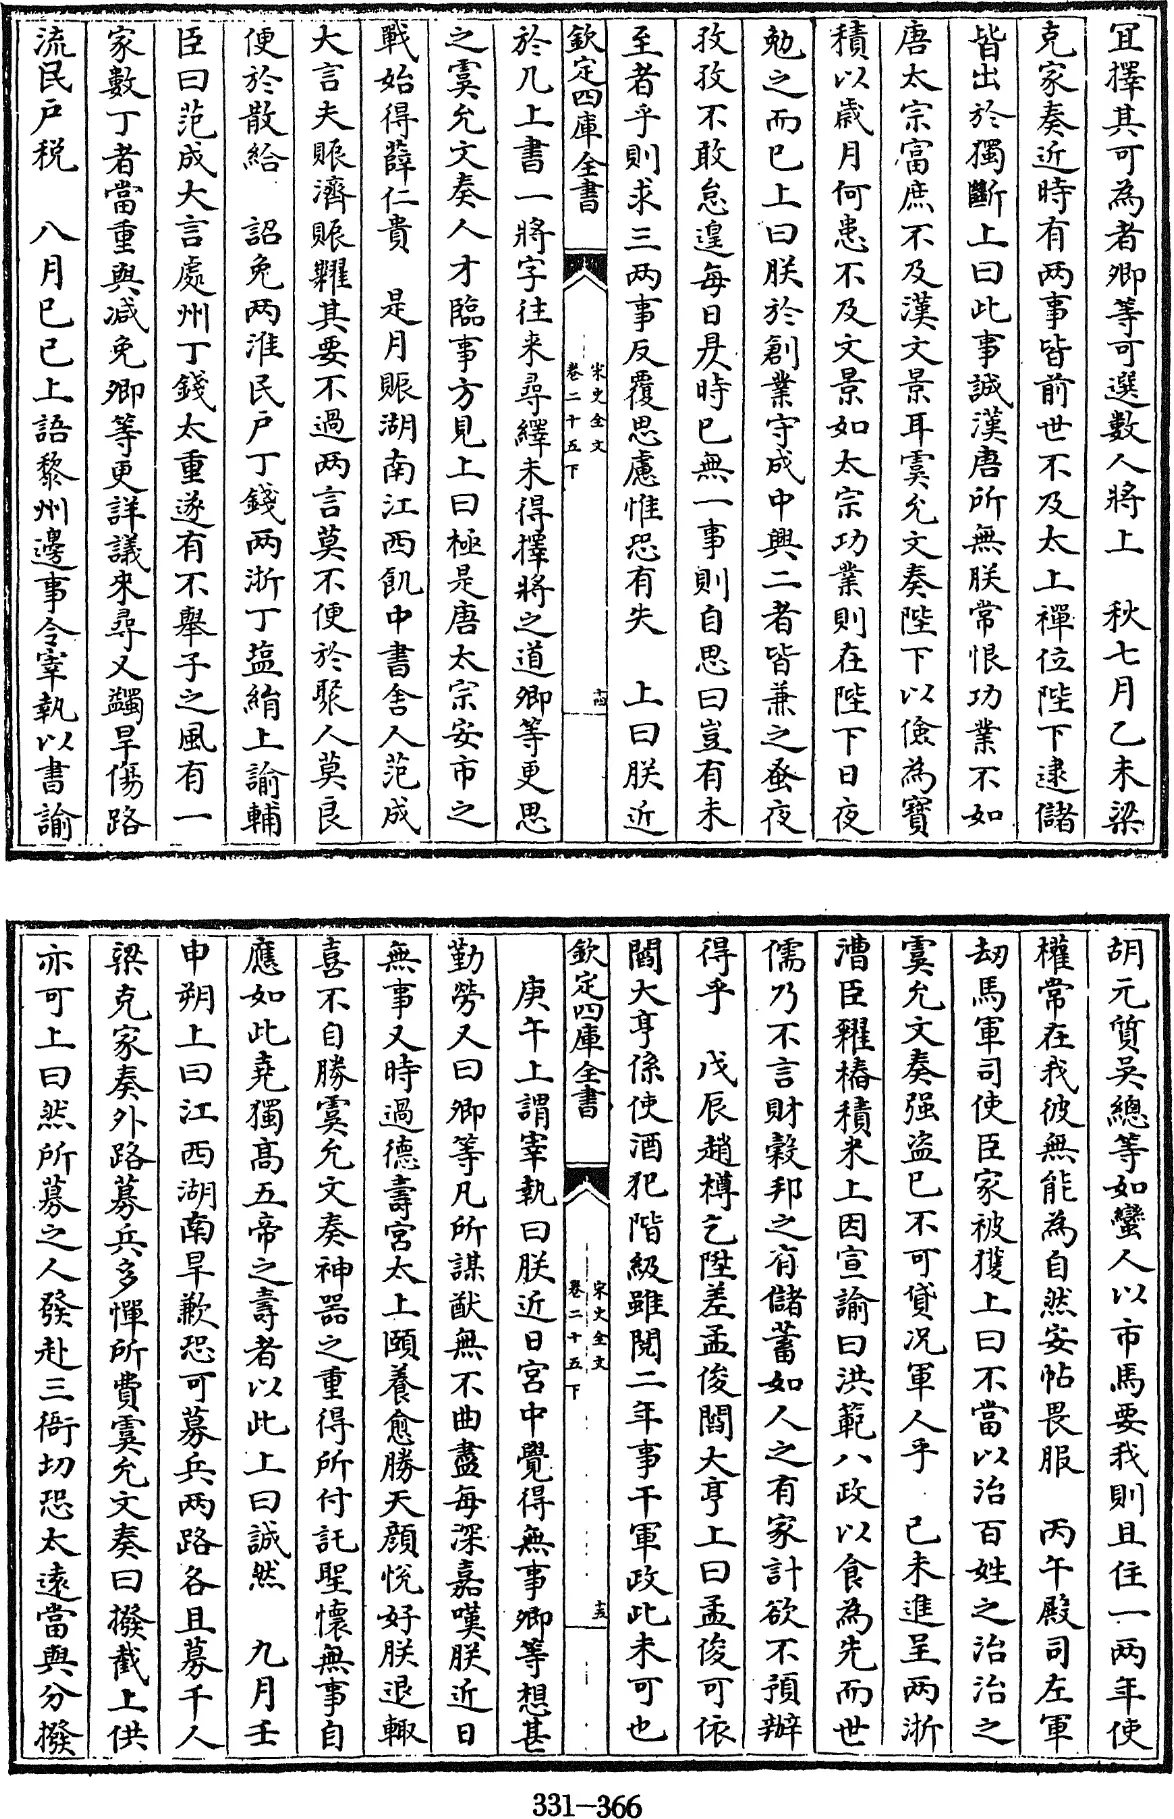 宜擇其可為者卿等可選數人將上　秋七月乙未梁
克家奏近時有两事皆前世不及太上禪位陛下逮儲
皆出於獨斷上曰此事誠漢唐所無朕常恨功業不如
唐太宗富庶不及漢文景耳虞允文奏陛下以儉為寳
積以歲月何患不及文景如太宗功業則在陛下日夜
勉之而已上曰朕於創業守成中興二者皆兼之蚤夜
孜孜不敢怠遑每日昃時已無一事則自思曰豈有未
至者乎則求三两事反覆思慮惟恐有失　上曰朕近
欽定四庫全書
宋史全文
卷二十五下
十四
於几上書一將字往来尋繹未得擇將之道卿等更思
之虞允文奏人才臨事方見上曰極是唐太宗安市之
戰始得薛仁貴　是月賑湖南江西飢中書舍人范成
大言夫賑濟賑糶其要不過两言莫不便於聚人莫良
便於散給　詔免两淮民户丁錢两浙丁盐絹上諭輔
臣曰范成大言處州丁錢太重遂有不舉子之風有一
家數丁者當重與减免卿等更詳議來尋又蠲旱傷路
流民户税　八月已已上語黎州邊事令宰執以書諭
胡元質吳總等如蠻人以市馬要我則且住一两年使
權常在我彼無能為自然安帖畏服　丙午殿司左軍
刼馬軍司使臣家被獲上曰不當以治百姓之治治之
虞允文奏强盗已不可貸况軍人乎　己未進呈两浙
漕臣糶樁積米上因宣諭曰洪範八政以食為先而世
儒乃不言財穀邦之有儲蓄如人之有家計欲不預辦
得乎　戊辰趙樽乞陞差孟俊閻大亨上曰孟俊可依
閻大亨係使酒犯階級雖閱二年事干軍政此未可也
欽定四庫全書
宋史全文
卷二十五下
十五
庚午上謂宰執曰朕近日宮中覺得無事卿等想甚
勤勞又曰卿等凡所謀猷無不曲盡每深嘉嘆朕近日
無事又時過德壽宮太上頤養愈勝天顔悦好朕退輙
喜不自勝虞允文奏神器之重得所付託聖懷無事自
應如此堯獨高五帝之壽者以此上曰誠然　九月壬
申朔上曰江西湖南旱歉恐可募兵两路各且募千人
梁克家奏外路募兵多憚所費虞允文奏曰撥截上供
亦可上曰然所募之人發赴三衙切恐太遠當與分撥
331—366